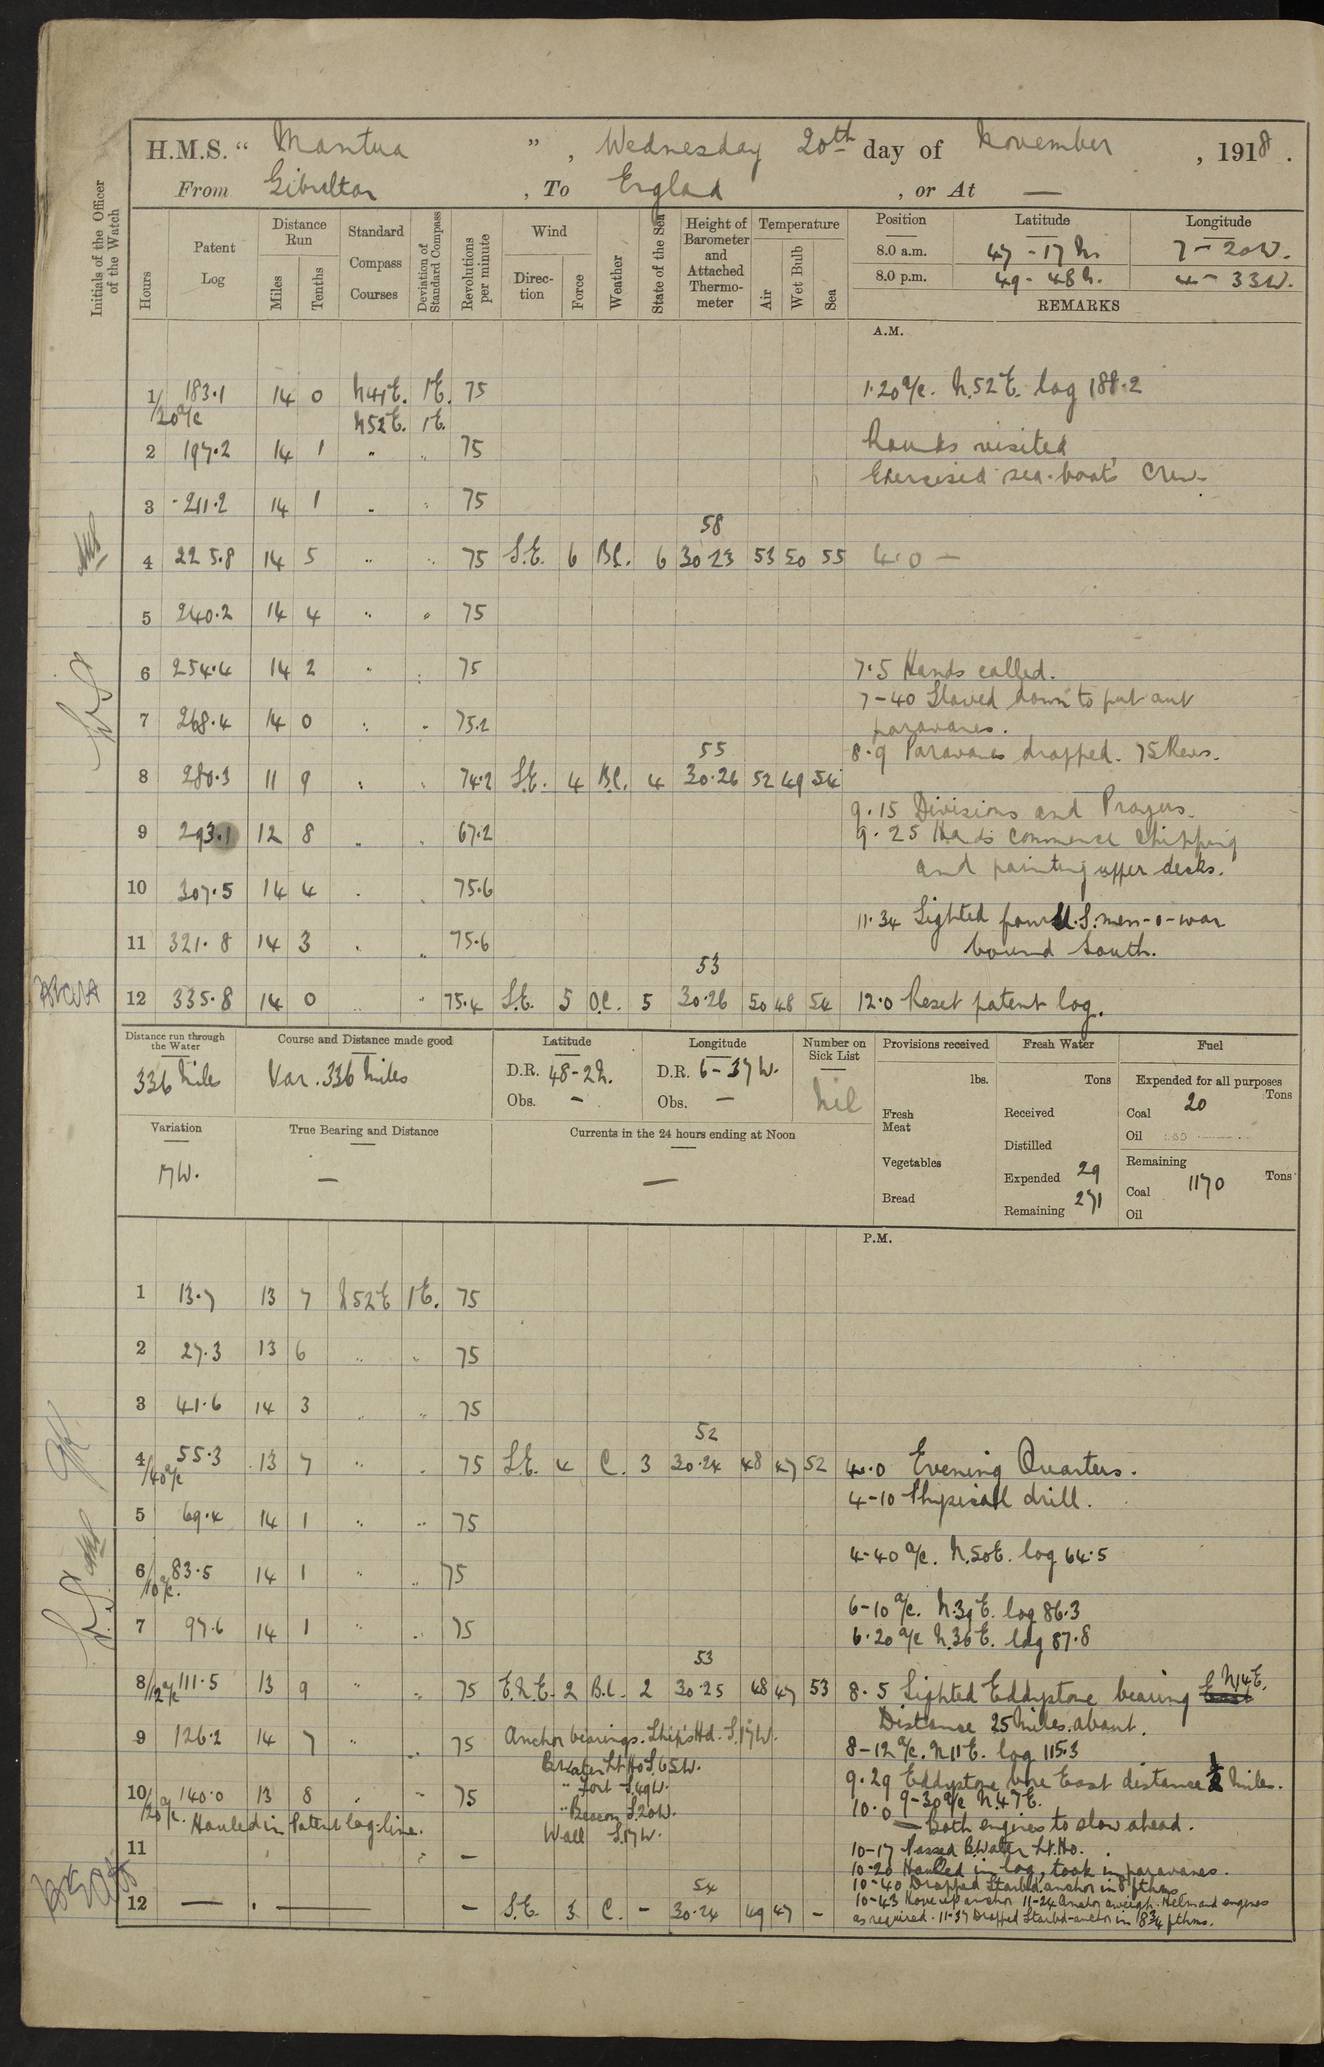 H.M.S. “ Mantua ” , Wednesday 20th day of November , 1918 .
From Gibraltar , To Englad , or At —
Initials of the Officer of the Watch
Hours
Patent Log
Distance Run
Miles
Tenths
Standard Compass Courses
Deviation of Standard Compass
Revolutions per minute
Wind
Direction
Force
Weather
State of the Sea
Height of Barometer and Attached Thermometer
Temperature
Air
Wet Bulb
Sea
Position Latitude Longitude
8.0 a.m. 47-17 N. 7-20W.
8.0 p.m. 49-48 N. 4-33W.
REMARKS
A.M.
1 183.1 14 0 N41E. 1E. 75 1.20 a/c. N.52E. log 188.2
/20 a/c N52E. 1E.
2 197.2 14 1 " " 75 Rounds visited
Exercised sea-boat's crew-
3 211.2 14 1 " " 75
58
4 225.8 14 5 " " 75 S.E. 6 B.C. 6 30.23 53 50 55 4.0 —
5 240.2 14 4 " " 75
6 254.4 14 2 " " 75 7.5 Hands called.
7-40 Slowed down to put out
7 268.4 14 0 " " 75.2 paravanes.
55 8.9 Paravanes dropped. 75 Revs.
8 280.3 11 9 " " 74.2 S.E. 4 B.C. 4 30.26 52 49 54
9.15 Divisions and Prayers.
9 293.1 12 8 " " 67.2 9.25 Hands commence chipping
and painting upper decks.
10 307.5 14 4 " " 75.6
11.34 Sighted four U.S. men-o-war
11 321.8 14 3 " " 75.6 bound South.
53
12 335.8 14 0 " " 75.4 S.E. 5 O.C. 5 30.26 50 48 54 12.0 Reset patent log.
Distance run through the Water
336 Miles
Course and Distance made good
Var. 336 Miles
Latitude
D.R. 48-2N.
Obs. —
Longitude
D.R. 6-37W.
Obs. —
Number on Sick List
Nil
Provisions received
lbs.
Fresh Meat
Vegetables
Bread
Fresh Water
Tons
Received
Distilled
Expended 29
Remaining 271
Fuel
Expended for all purposes
Tons
Coal 20
Oil
Remaining
Tons
Coal 1170
Oil
Variation
17W.
True Bearing and Distance
—
Currents in the 24 hours ending at Noon
—
P.M.
1 13.7 13 7 N52E 1E. 75
2 27.3 13 6 " " 75
3 41.6 14 3 " " 75
52
4 55.3 13 7 " " 75 S.E. 4 C. 3 30.24 48 47 52 4.0 Evening Quarters.
/40 a/c 4-10 Physical drill.
5 69.4 14 1 " " 75
4-40 a/c. N.50E. log 64.5
6 83.5 14 1 " " 75
/10 a/c. 6-10 a/c. N.39E. log 86.3
7 97.6 14 1 " " 75 6.20 a/c N.36E. log 87.8
53
8 111.5 13 9 " " 75 E.N.E. 2 B.C. 2 30.25 48 47 53 8.5 Sighted Eddystone bearing N14E.
/12 a/c Distance 25 Miles about.
9 126.2 14 7 " " 75 Anchor bearings. Ship's Hd. S.17W.
8-12 a/c. N11E. log 115.3
B.Water Lt Ho S.65W.
9.29 Eddystone bore East distance ½ miles.
" Fort S.49W.
10 140.0 13 8 " " 75 9-30 a/c N.47E.
/20 a/c. " Beacon S.20W.
10.0 — Both engines to slow ahead.
Hauled in Patent log-line. Wall S.17W.
11 " — 10-17 Passed B.Water Lt.Ho.
10-20 Hauled in log, took in paravanes.
54 10-40 Dropped Starbd. anchor in 8 fthms
12 — — — S.E. 3 C. - 30.24 49 47 - 10-43 Hove up anchor 11-24 Anchor aweigh. Helm and engines
as required. 11-37 Dropped Starbd-anchor in 8¾ fthms.